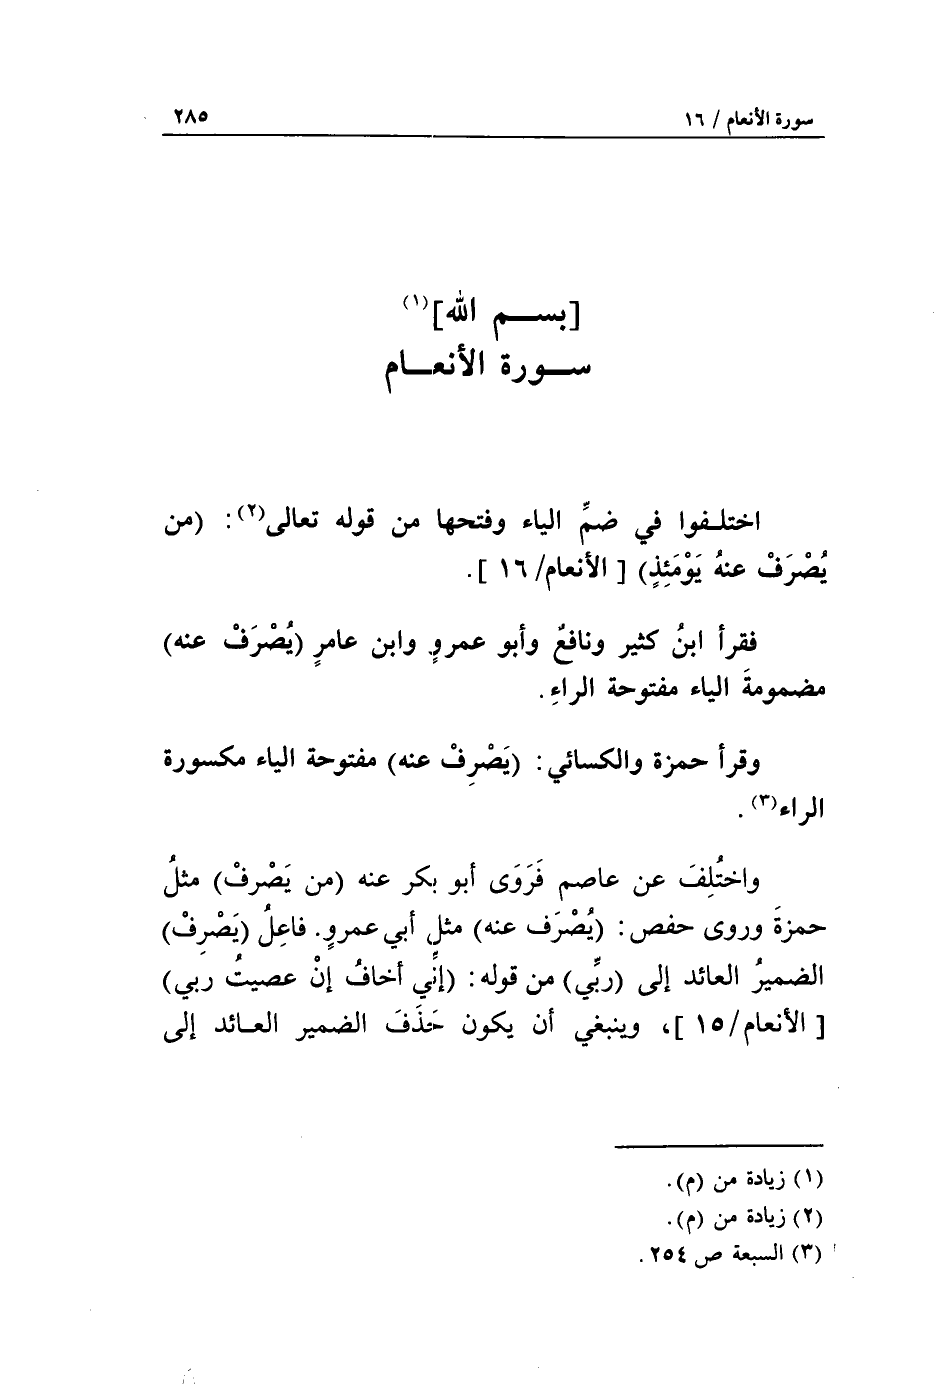 سورة الأنعام / ١٦
٢٨٥
[بسم الله]⁽¹⁾
سورة الأنعام
اختلفوا في ضمِّ الياء وفتحها من قوله تعالى⁽²⁾: (من
يُصْرَفْ عنهُ يَوْمَئِذٍ) [ الأنعام/١٦ ].
فقرأ ابنُ كثير ونافعٌ وأبو عمروٍ وابن عامرٍ (يُصْرَفْ عنه)
مضمومةَ الياء مفتوحة الراءِ.
وقرأ حمزة والكسائي: (يَصْرِفْ عنه) مفتوحة الياء مكسورة
الراء⁽³⁾.
واختُلِفَ عن عاصم فَرَوَى أبو بكر عنه (من يَصْرِفْ) مثلُ
حمزةَ وروى حفص: (يُصْرَف عنه) مثل أبي عمروٍ. فاعِلُ (يَصْرِفْ)
الضميرُ العائد إلى (ربِّي) من قوله: (إنِّي أخافُ إنْ عصيتُ ربي)
[ الأنعام/١٥ ]، وينبغي أن يكون حَذَفَ الضمير العائد إلى
(١) زيادة من (م).
(٢) زيادة من (م).
(٣) السبعة ص ٢٥٤.